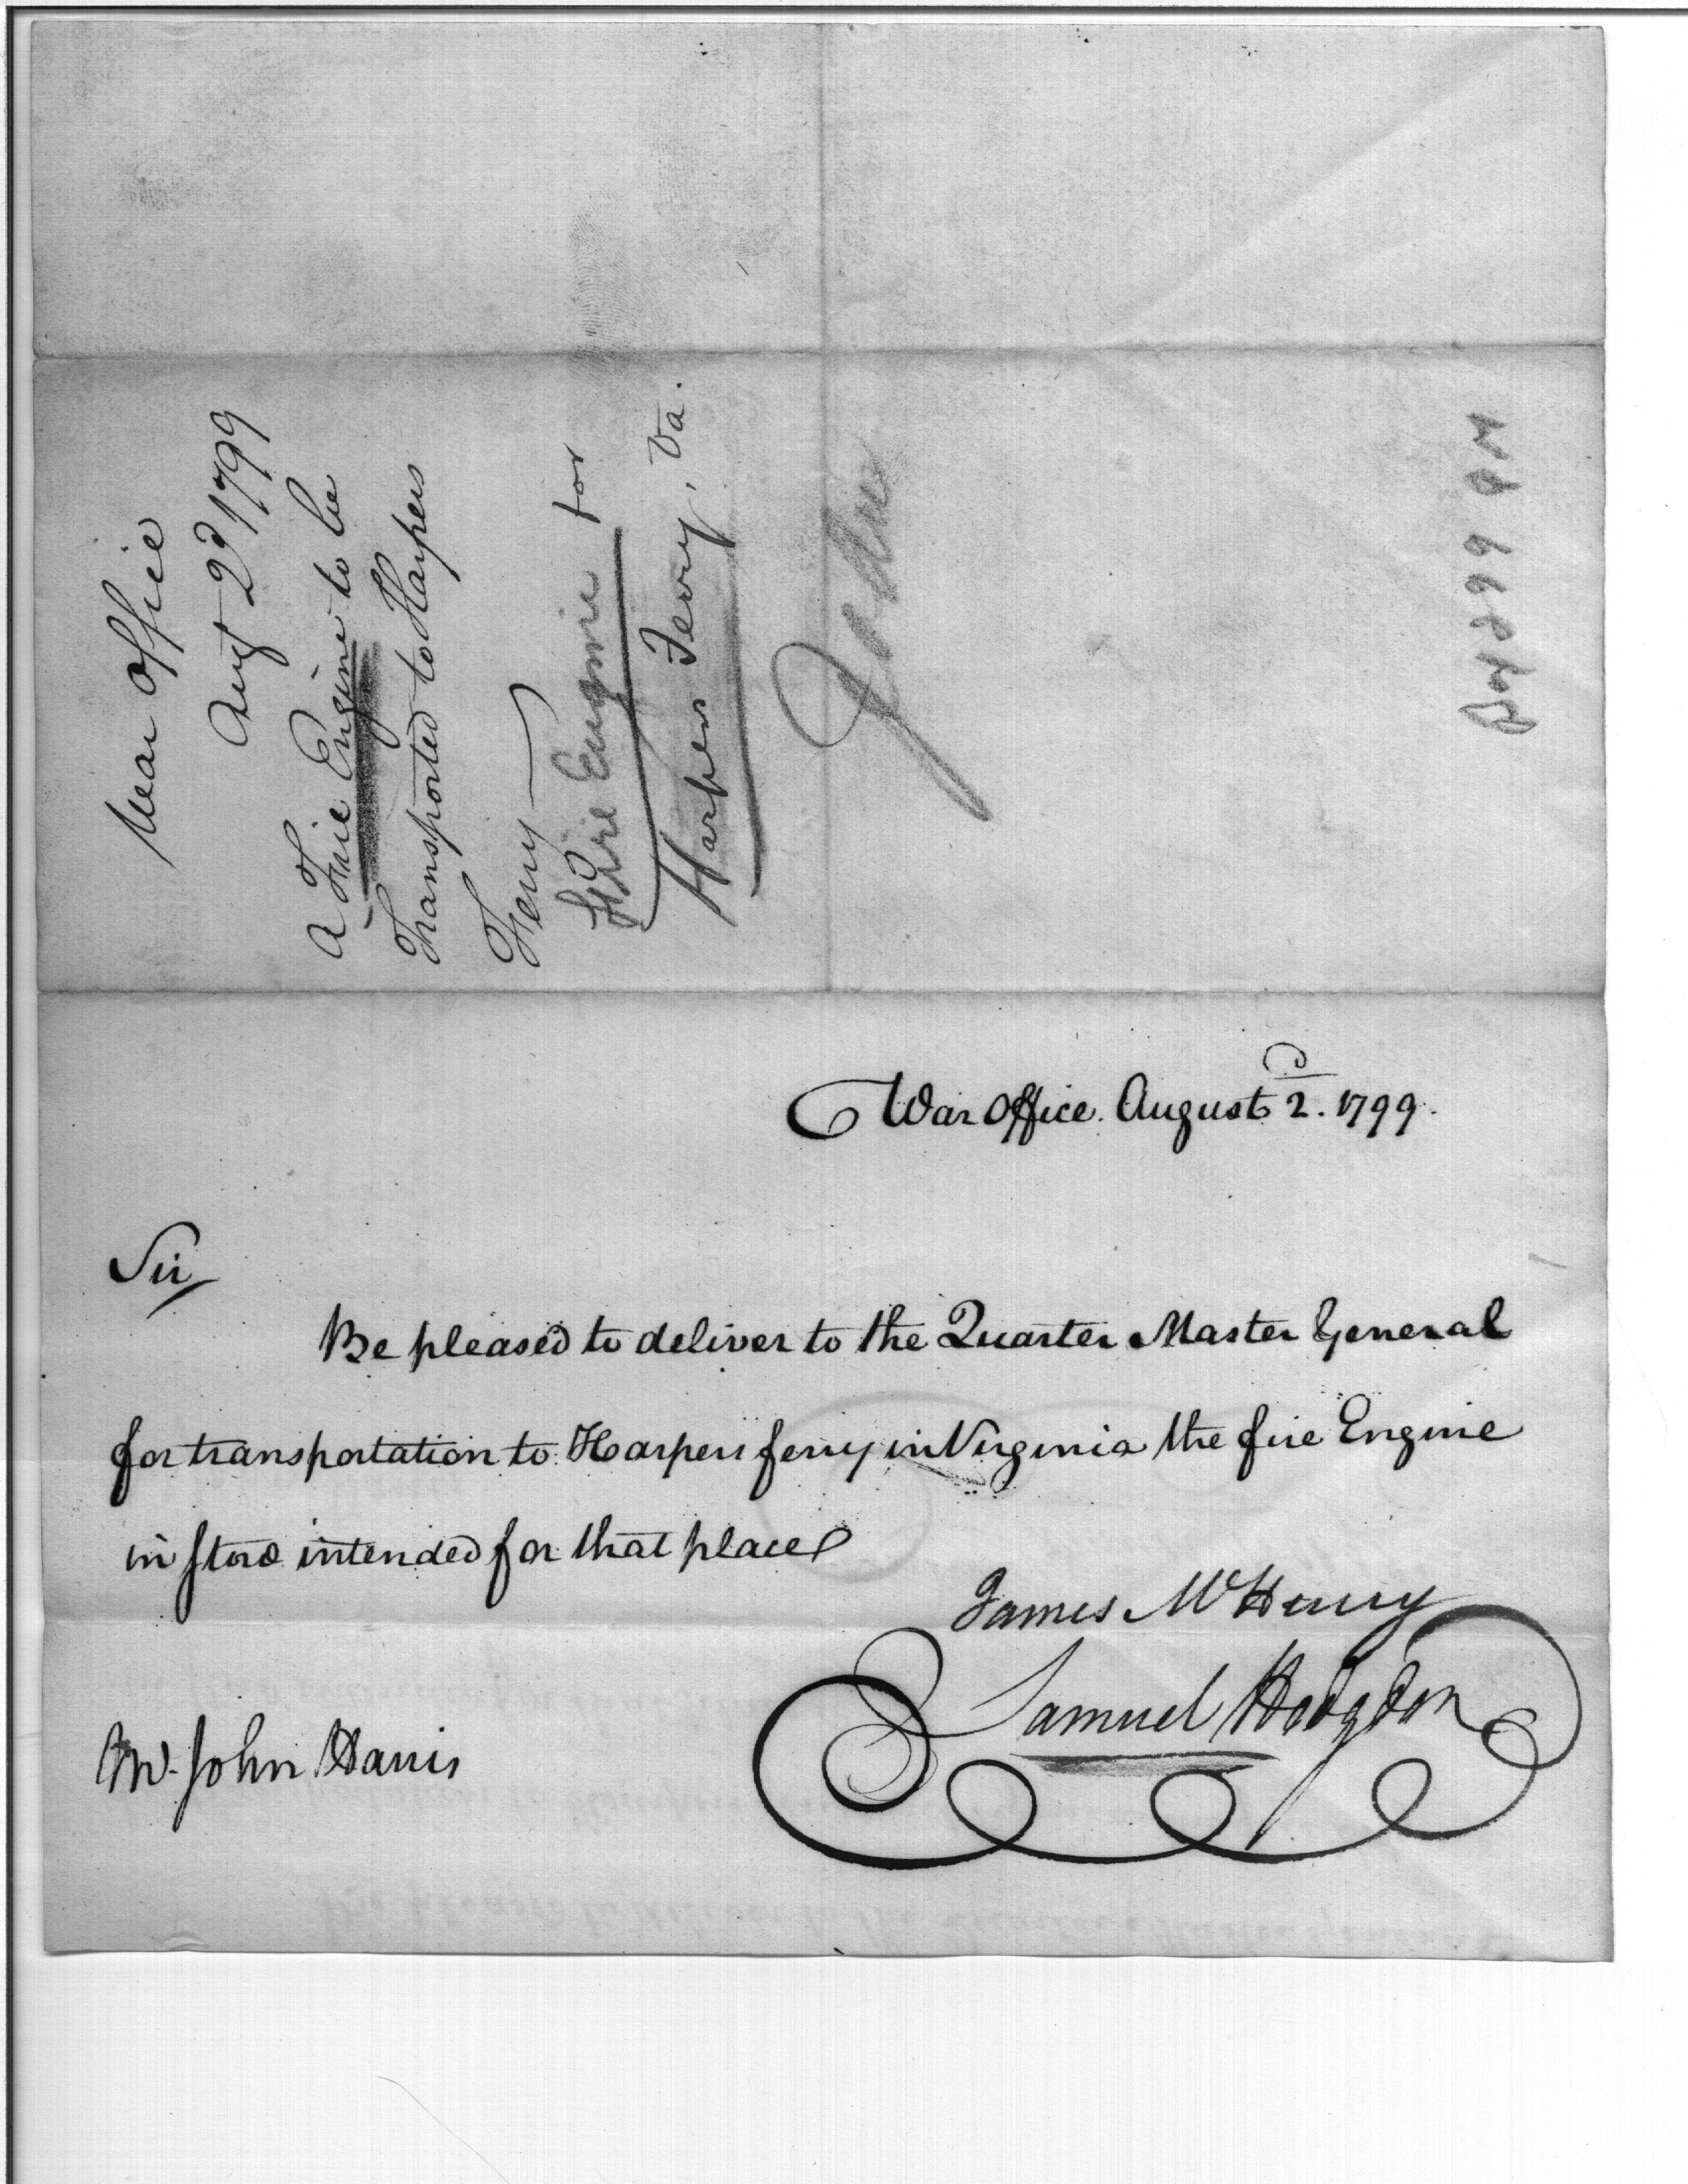 War Office
Augt 2d 1799
A Fire Engine to be
Transported to Harpers
Ferry
Fire Engine for
Harpers Ferry, Va.
War Office. August 2d. 1799.
Sir
Be pleased to deliver to the Quarter Master General
for transportation to Harpers ferry in Virginia the fire Engine
in store intended for that place
James McHenry
Samuel Hodgdon
Mr. John Harris